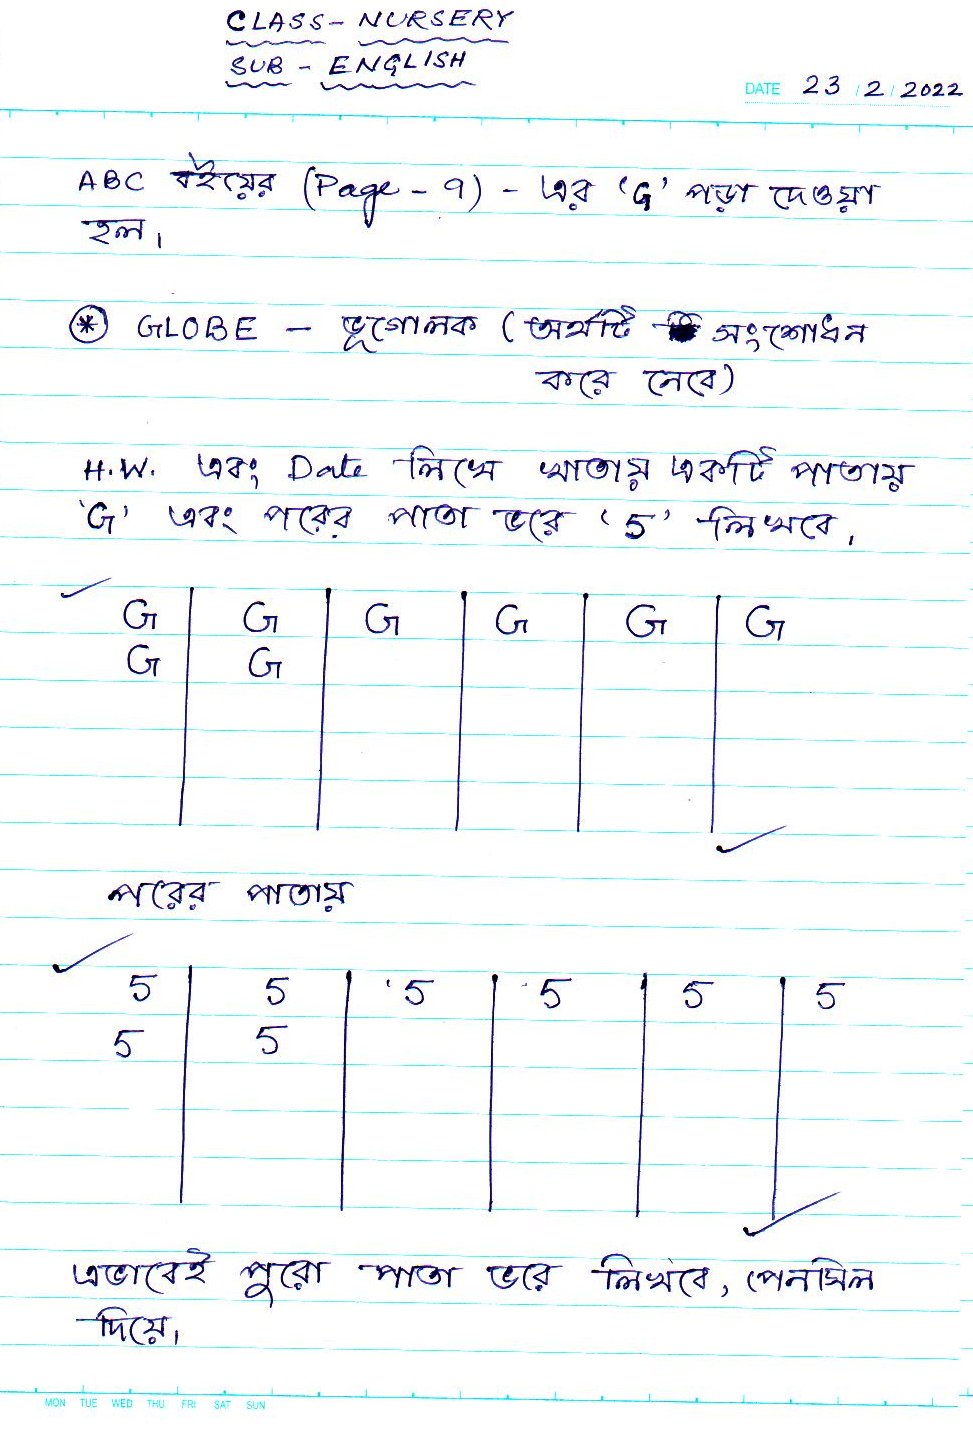 CLASS - NURSERY
SUB - ENGLISH
DATE 23 / 2 / 2022
ABC বইয়ের (Page - 9) - এর 'G' পড়া দেওয়া
হল।
* GLOBE - ভূগোলক (অর্থটি সংশোধন
করে নেবে)
H.W. এবং Date লিখে খাতায় একটি পাতায়
'G' এবং পরের পাতা ভরে '5' লিখবে।
G G G G G G
G G
পরের পাতায়
5 5 5 5 5 5
5 5
এভাবেই পুরো পাতা ভরে লিখবে, পেনসিল
দিয়ে।
MON TUE WED THU FRI SAT SUN